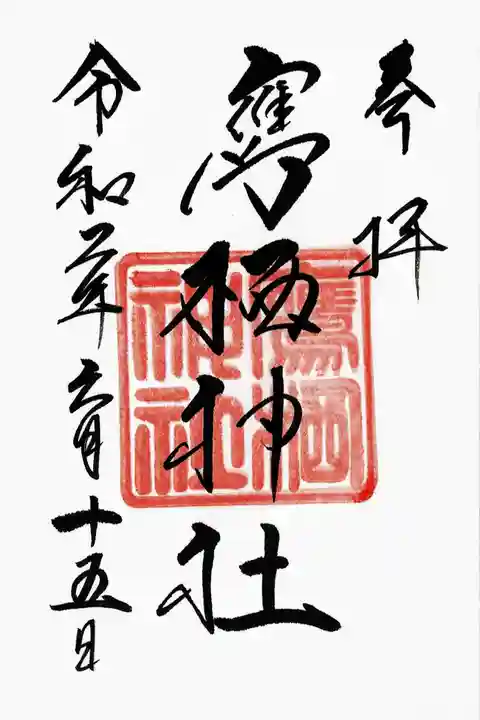 奉拝
鷹栖神社
令和二年六月十五日
鷹栖
神社